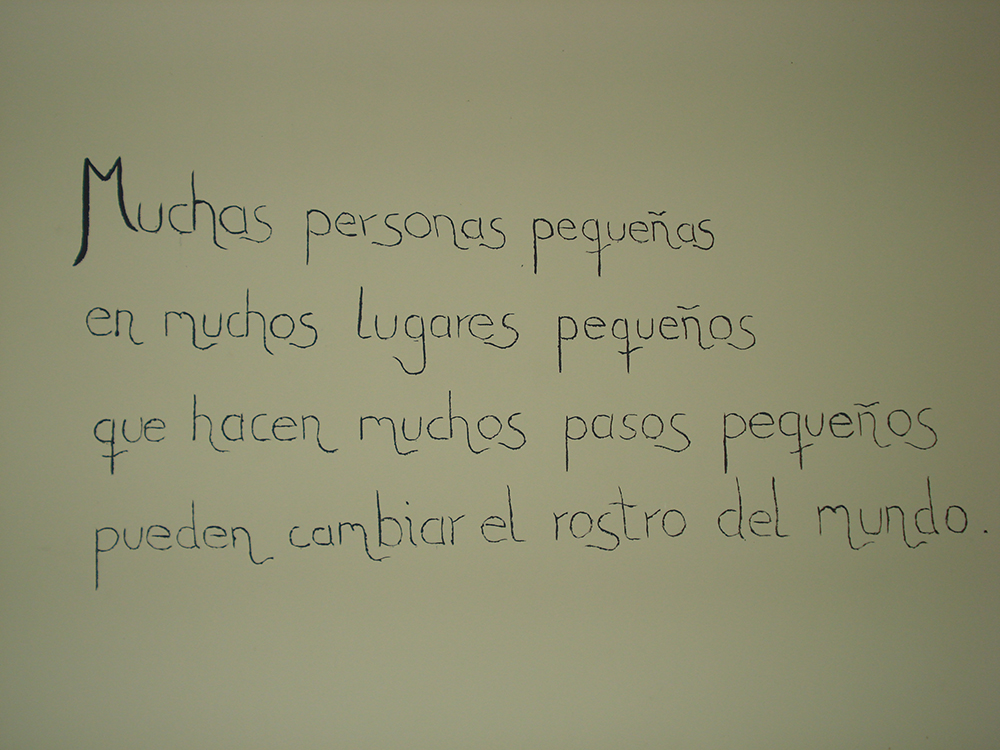 Muchas personas pequeñas
en muchos lugares pequeños
que hacen muchos pasos pequeños
pueden cambiar el rostro del mundo.